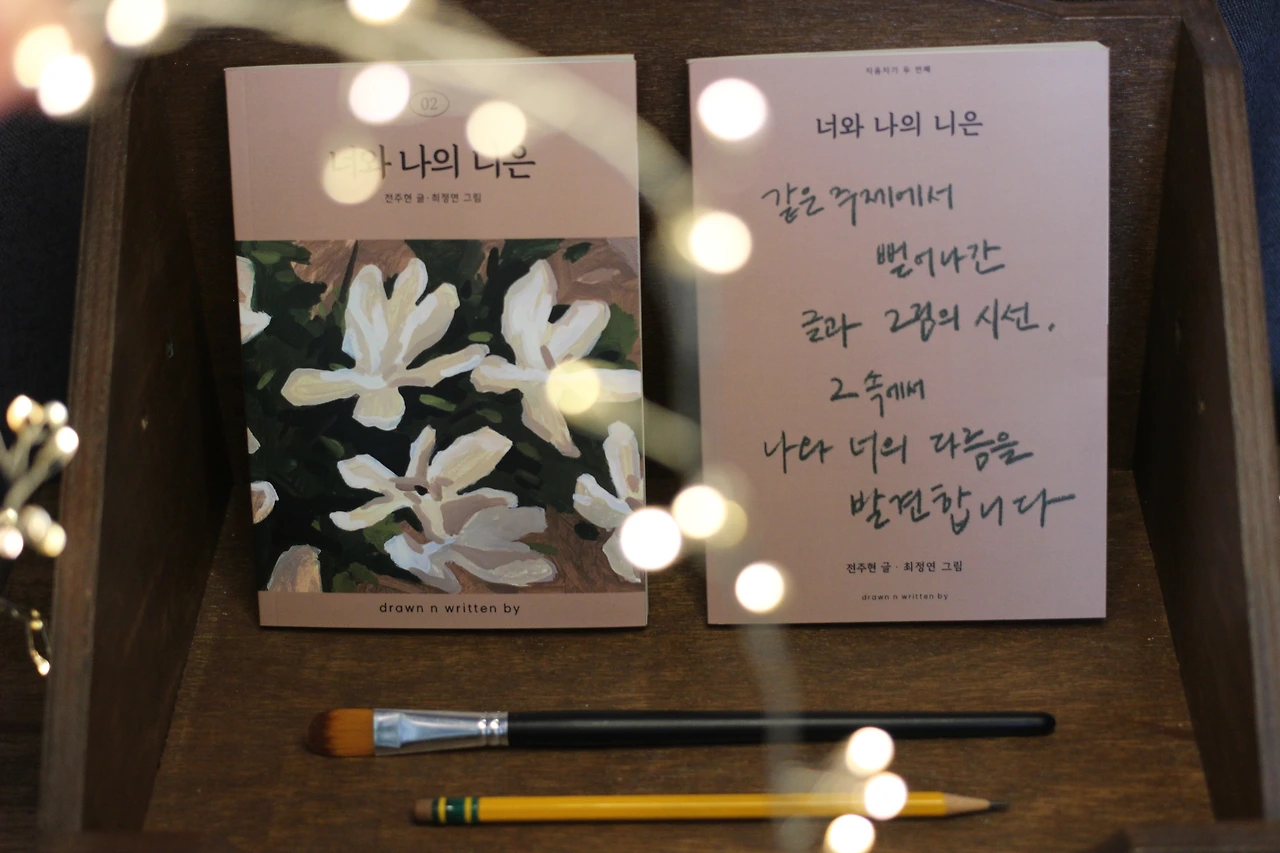 02
너와 나의 니은
전주현 글 · 최정연 그림
drawn n written by
자음자기 두 번째
너와 나의 니은
같은 주제에서
뻗어나간
글과 그림의 시선.
그 속에서
나와 너의 다름을
발견합니다
전주현 글 · 최정연 그림
drawn n written by